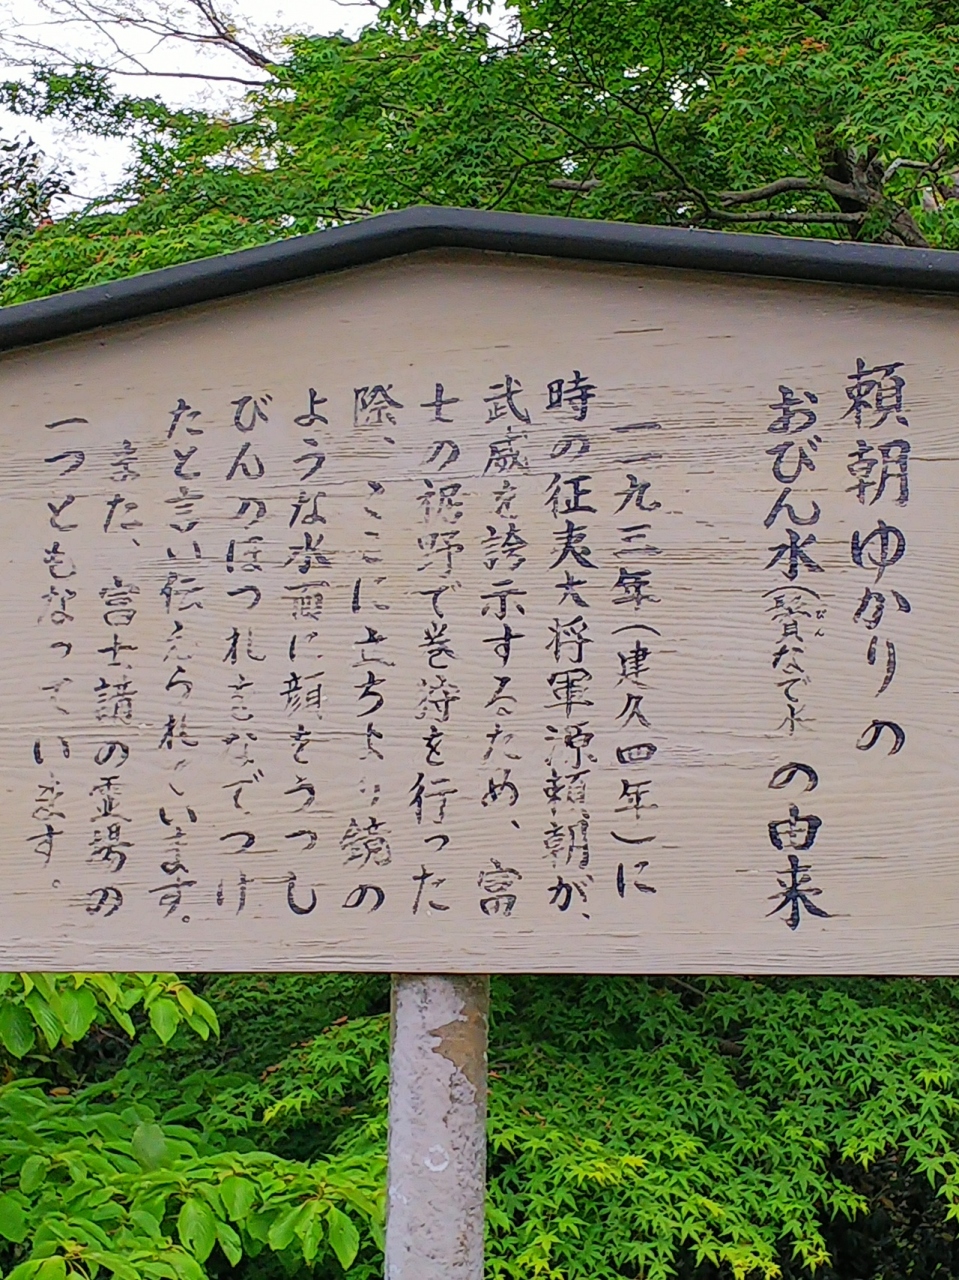 頼朝ゆかりの
おびん水(鬢なで水)の由来
びん
一一九三年(建久四年)に
時の征夷大将軍源頼朝が、
武威を誇示するため、富
士の裾野で巻狩を行った
際、ここに立ちより鏡の
ような水面に顔をうつし
びんのほつれをなでつけ
たと言い伝えられています。
また、富士講の霊場の
一つともなっています。